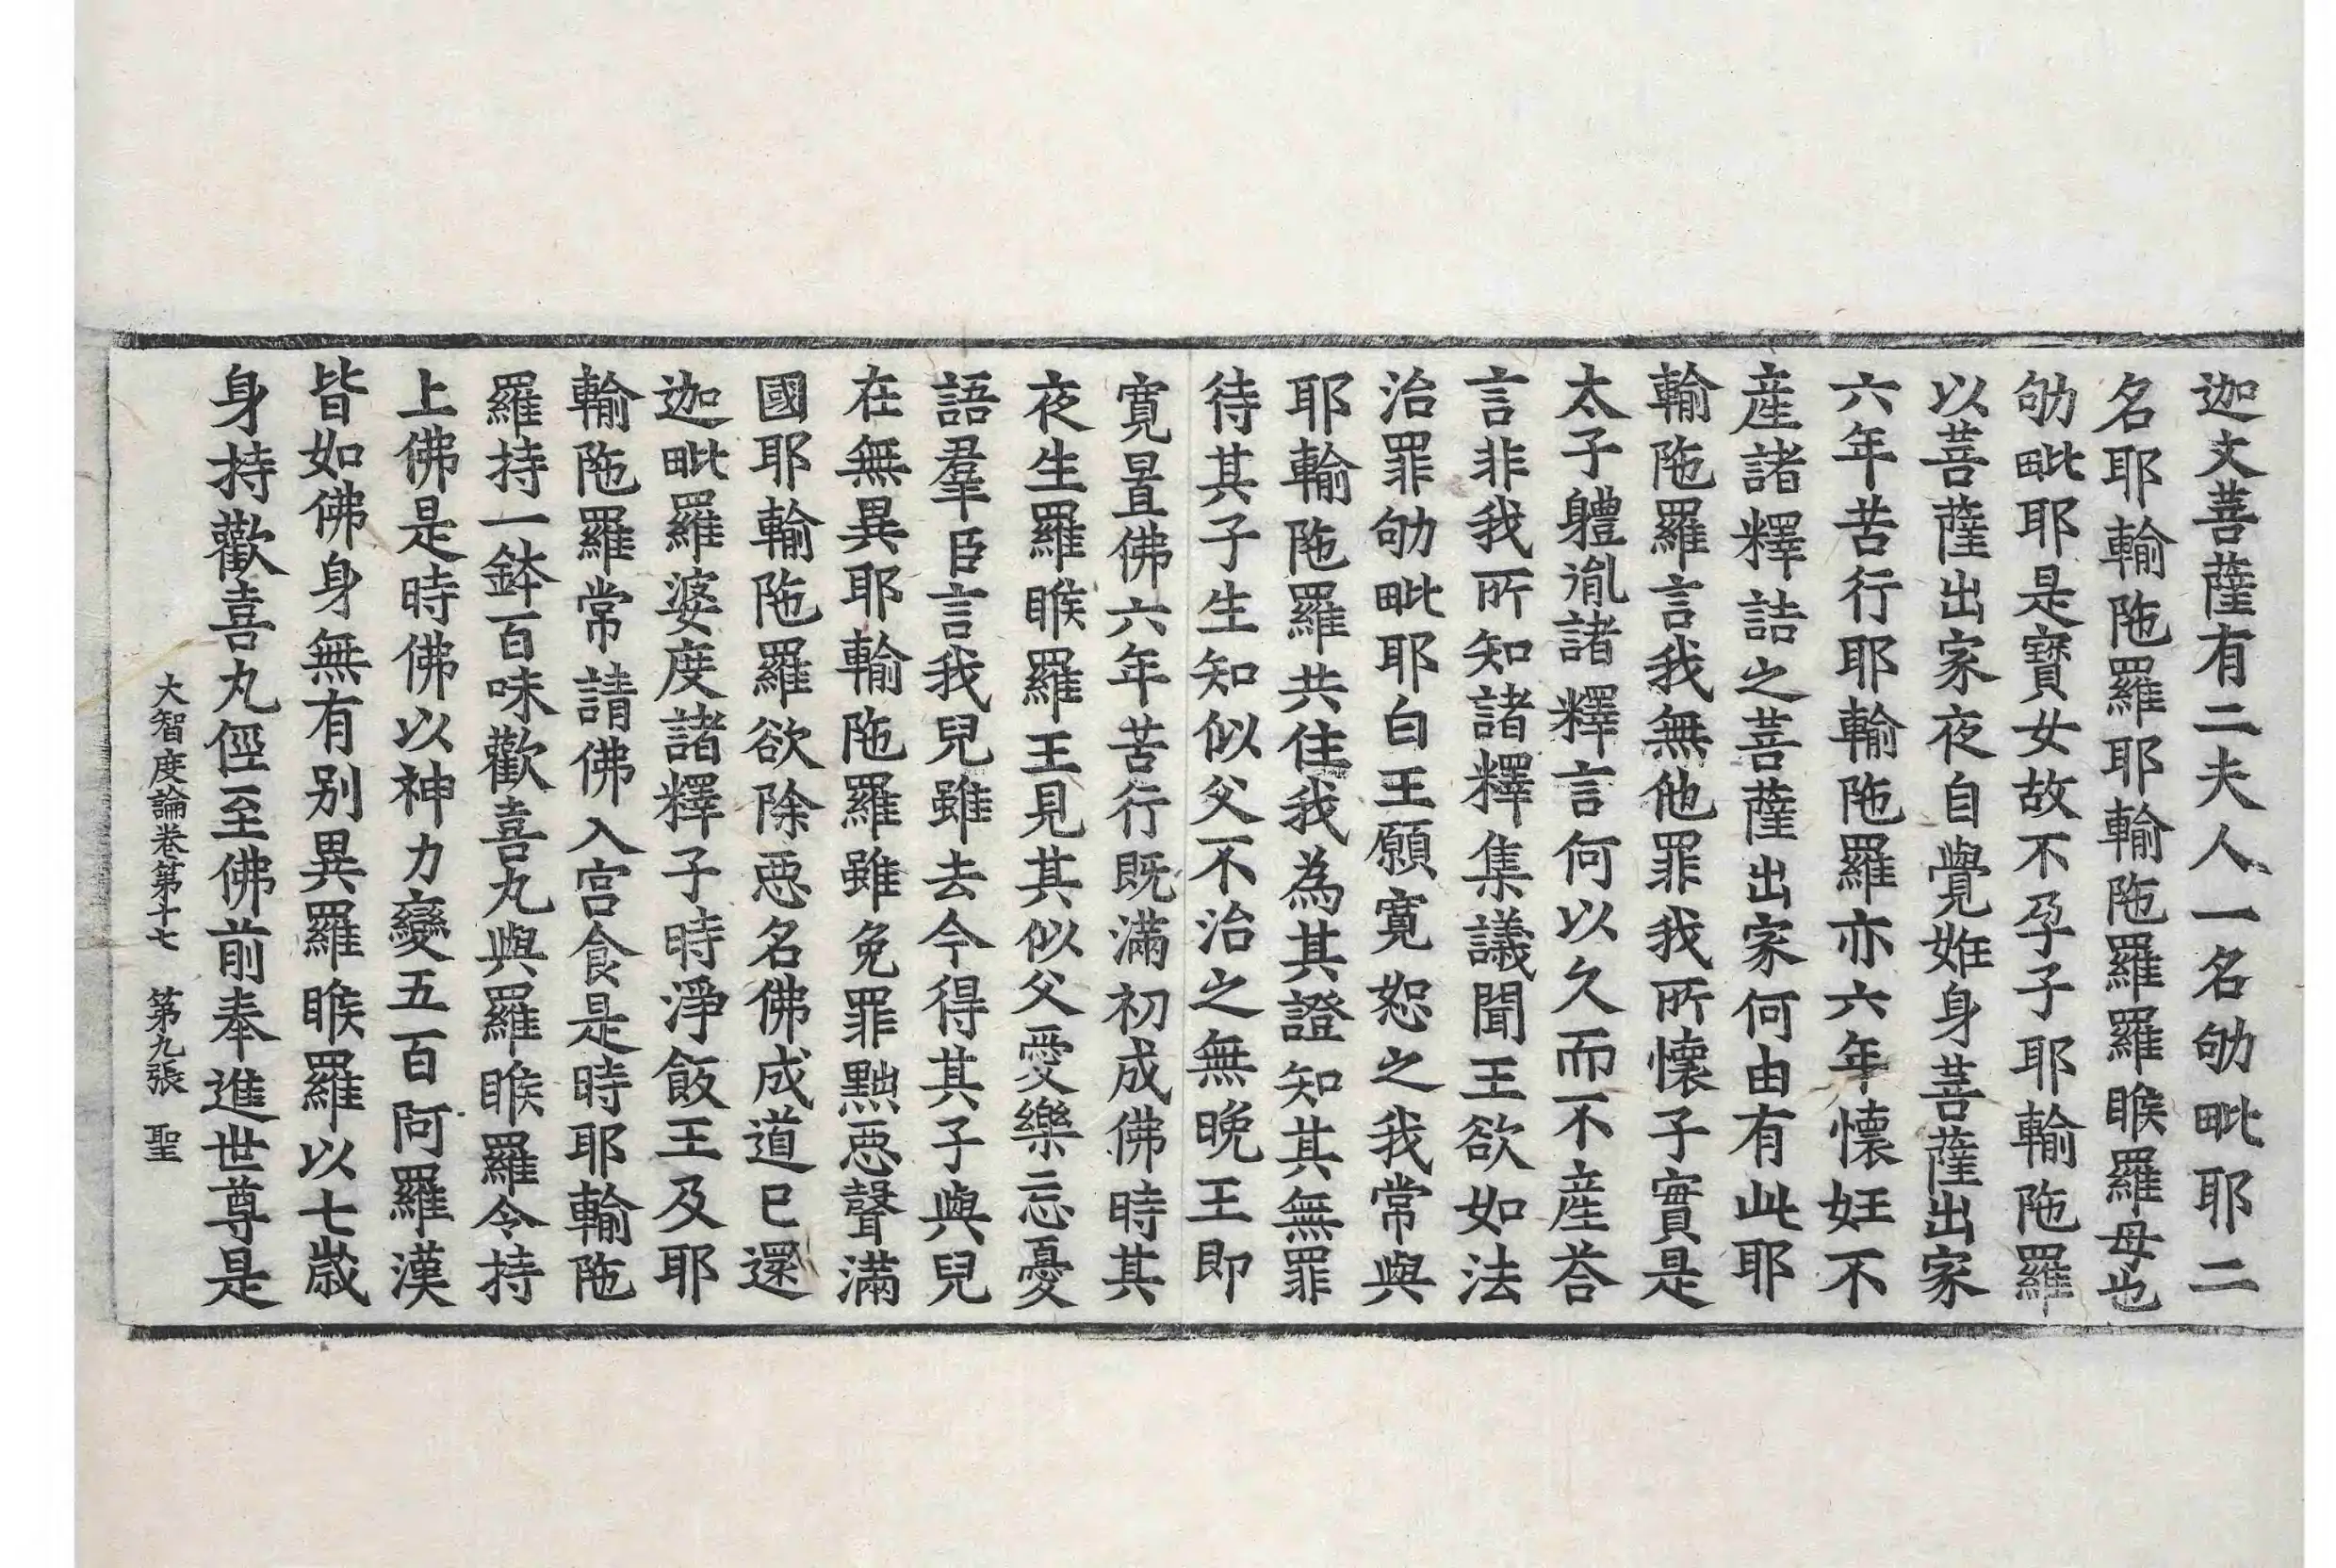 迦文菩薩有二夫人一名劬毗耶二
名耶輸陁羅耶輸陁羅羅睺羅母也
劬毗耶是寶女故不孕子耶輸陁羅
以菩薩出家夜自覺姙身菩薩出家
六年苦行耶輸陁羅亦六年懷妊不
産諸釋詰之菩薩出家何由有此耶
輸陁羅言我無他罪我所懷子實是
太子體胤諸釋言何以久而不産荅
言非我所知諸釋集議聞王欲如法
治罪劬毗耶白王願寬恕之我常與
耶輸陁羅共住我為其證知其無罪
待其子生知似父不治之無晚王即
寬置佛六年苦行既滿初成佛時其
夜生羅睺羅王見其似父愛樂忘憂
語羣臣言我兒雖去今得其子與兒
在無異耶輸陁羅雖免罪黜惡聲滿
國耶輸陁羅欲除惡名佛成道已還
迦毗羅婆度諸釋子時淨飯王及耶
輸陁羅常請佛入宮食是時耶輸陁
羅持一鉢百味歡喜丸與羅睺羅令持
上佛是時佛以神力變五百阿羅漢
皆如佛身無有别異羅睺羅以七歲
身持歡喜丸俓至佛前奉進世尊是
大智度論卷第十七 第九張 聖